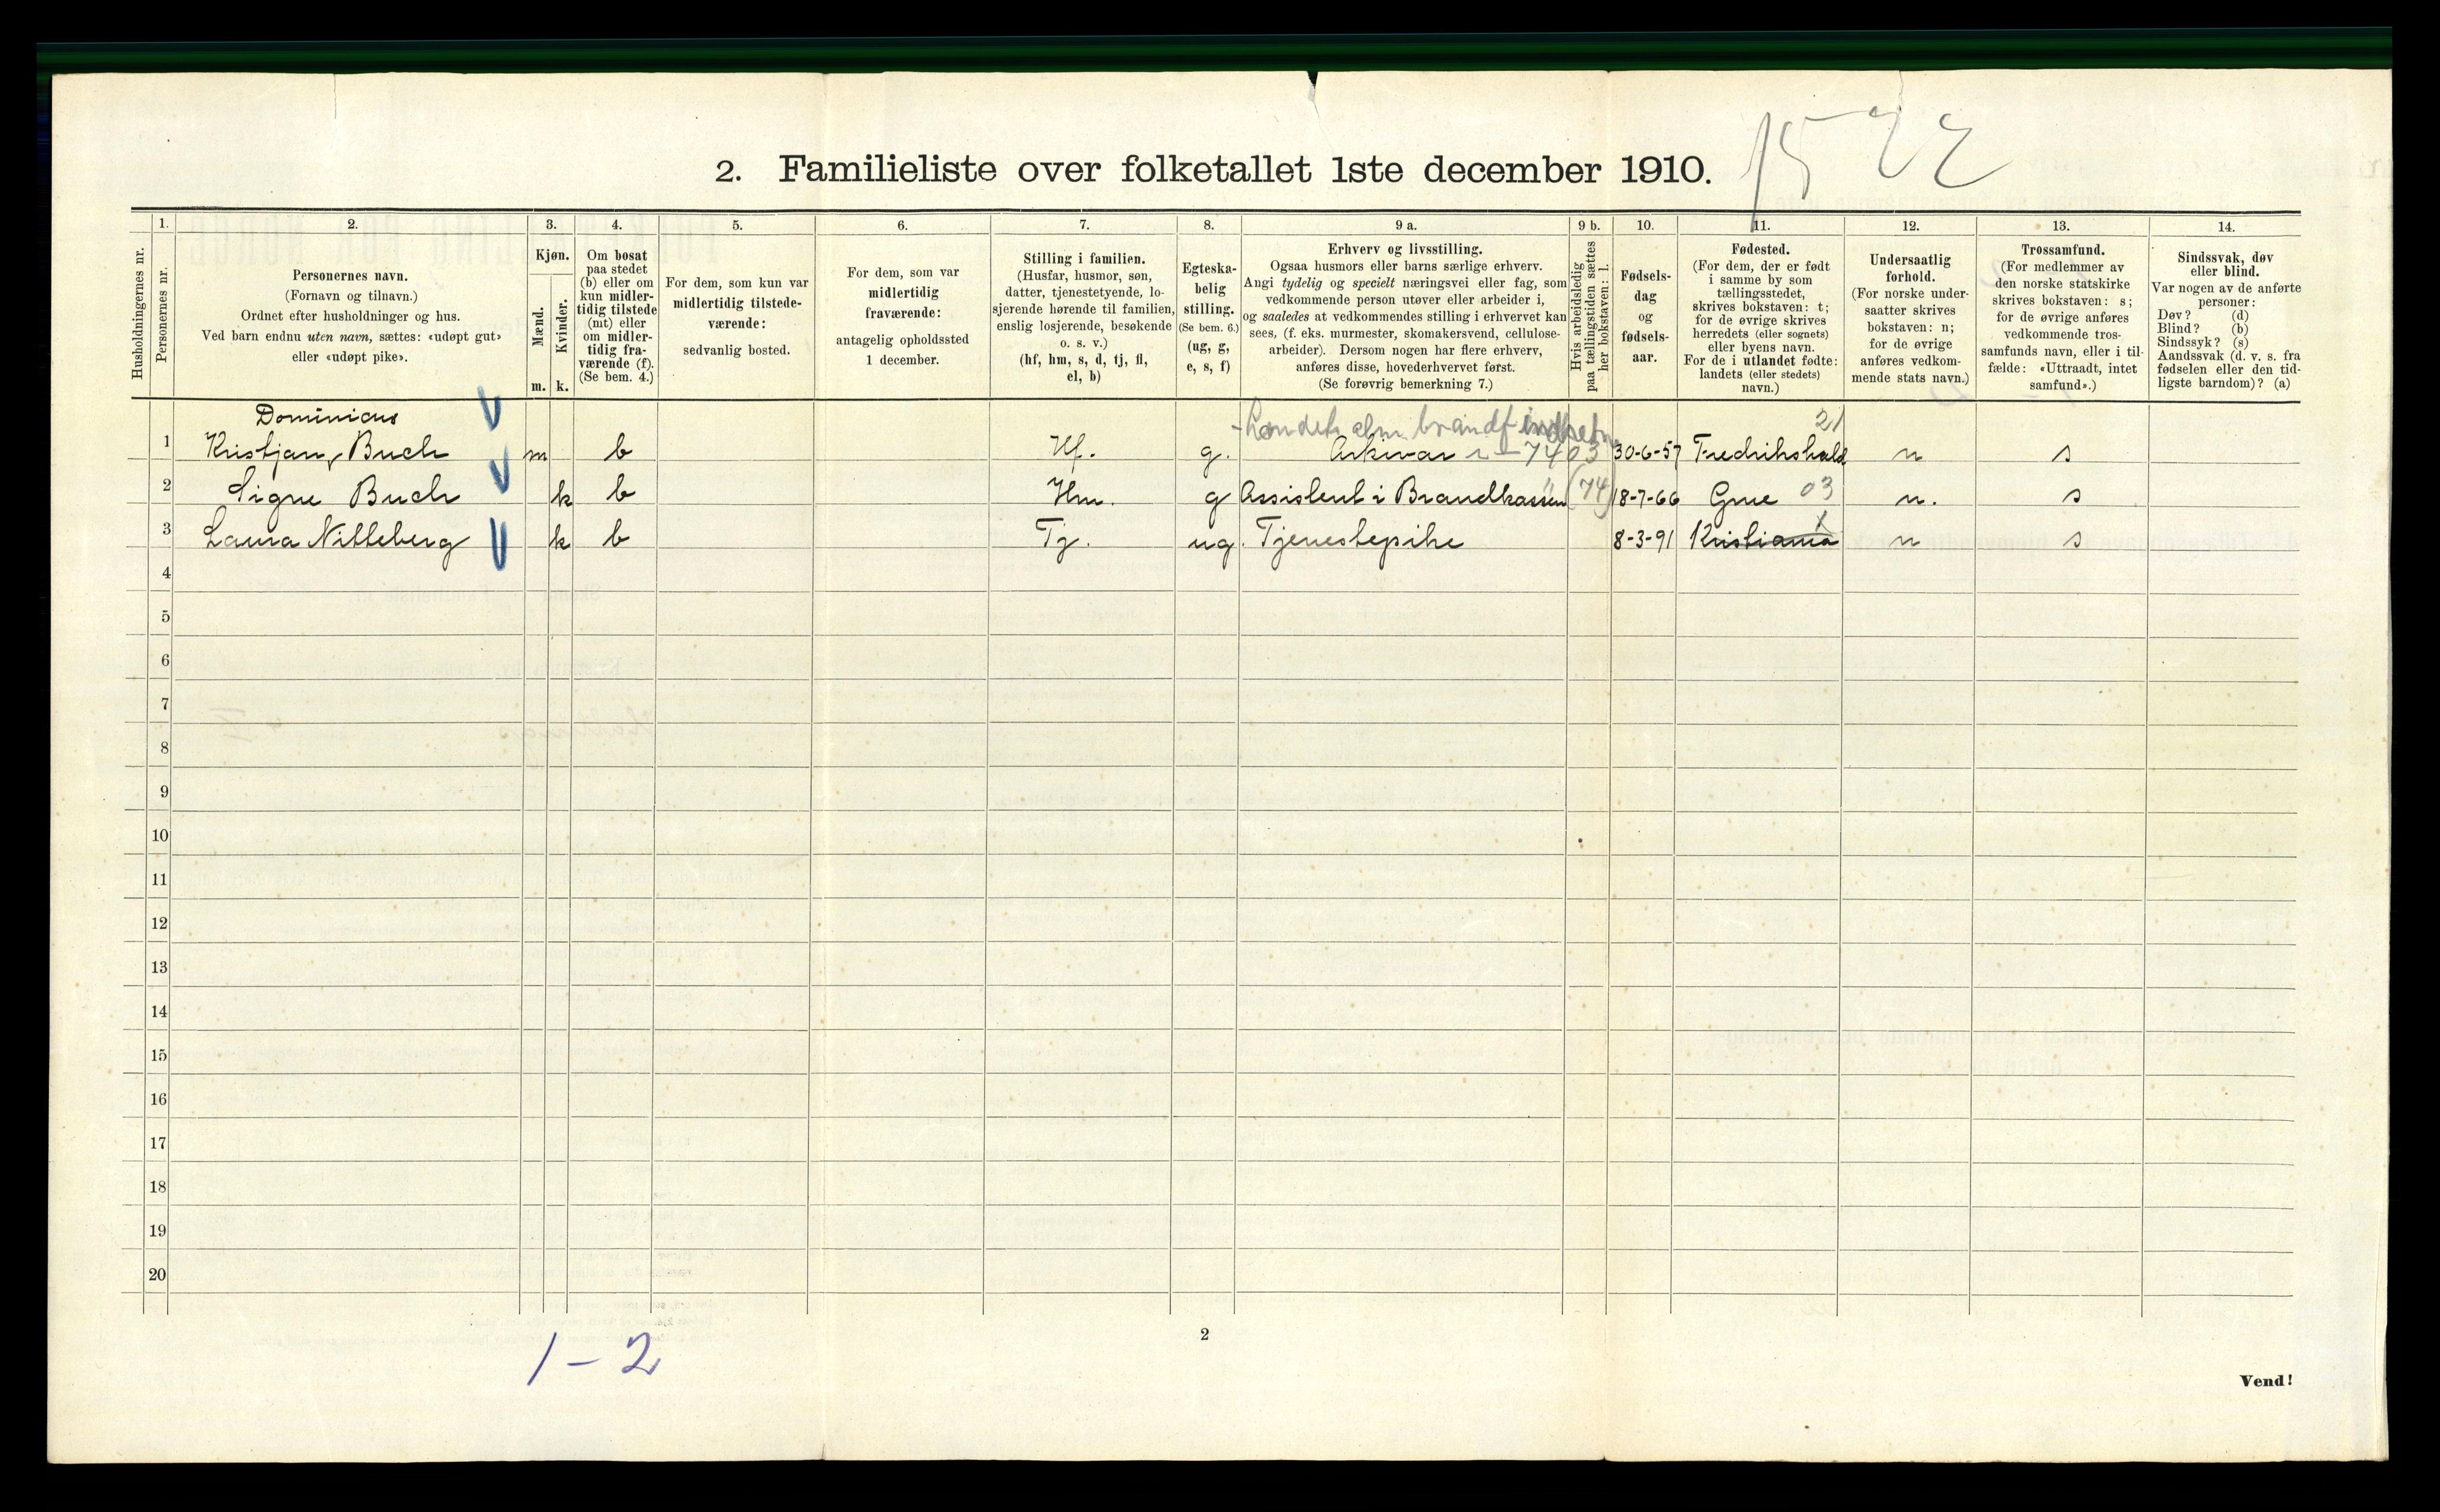 1522
2. Familieliste over folketallet 1ste december 1910.
Husholdningernes nr.
1.
Personernes nr.
2.
Personernes navn.
(Fornavn og tilnavn.)
Ordnet efter husholdninger og hus.
Ved barn endnu uten navn, sættes: «udøpt gut»
eller «udøpt pike».
3.
Kjøn.
Mænd.
m.
Kvinder.
k.
4.
Om bosat
paa stedet
(b) eller om
kun midler-
tidig tilstede
(mt) eller
om midler-
tidig fra-
værende (f).
(Se bem. 4.)
5.
For dem, som kun var
midlertidig tilstede-
værende:
sedvanlig bosted.
6.
For dem, som var
midlertidig
fraværende:
antagelig opholdssted
1 december.
7.
Stilling i familien.
(Husfar, husmor, søn,
datter, tjenestetyende, lo-
sjerende hørende til familien,
enslig losjerende, besøkende
o. s. v.)
(hf, hm, s, d, tj, fl,
el, b)
8.
Egteska-
belig
stilling.
(Se bem. 6.)
(ug, g,
e, s, f)
9 a.
Erhverv og livsstilling.
Ogsaa husmors eller barns særlige erhverv.
Angi tydelig og specielt næringsvei eller fag, som
vedkommende person utøver eller arbeider i,
og saaledes at vedkommendes stilling i erhvervet kan
sees, (f. eks. murmester, skomakersvend, cellulose-
arbeider). Dersom nogen har flere erhverv,
anføres disse, hovederhvervet først.
(Se forøvrig bemerkning 7.)
9 b.
Hvis arbeidsledig
paa tællingstiden sættes
her bokstaven: l.
10.
Fødsels-
dag
og
fødsels-
aar.
11.
Fødested.
(For dem, der er født
i samme by som
tællingsstedet,
skrives bokstaven: t;
for de øvrige skrives
herredets (eller sognets)
eller byens navn.
For de i utlandet fødte:
landets (eller stedets)
navn.)
12.
Undersaatlig
forhold.
(For norske under-
saatter skrives
bokstaven: n;
for de øvrige
anføres vedkom-
mende stats navn.)
13.
Trossamfund.
(For medlemmer av
den norske statskirke
skrives bokstaven: s;
for de øvrige anføres
vedkommende tros-
samfunds navn, eller i til-
fælde: «Uttraadt, intet
samfund».)
14.
Sindssvak, døv
eller blind.
Var nogen av de anførte
personer:
Døv? (d)
Blind? (b)
Sindssyk? (s)
Aandssvak (d. v. s. fra
fødselen eller den tid-
ligste barndom)? (a)
Dominicus
Landets alm. brandf 21
1 Kristjan Buch m b Hf. g. Arkivar 7403 30-6-57 Fredrikshald n s
2 Signe Buch k b Hm. g Assistent i Brandkassen (74) 18-7-66 Grue 03 n. s
3 Laura Nitteberg k b Tj. ug. Tjenestepike 8-3-91 Kristiania t n s
4
5
6
7
8
9
10
11
12
13
14
15
16
17
18
19
20
2
1-2
Vend!